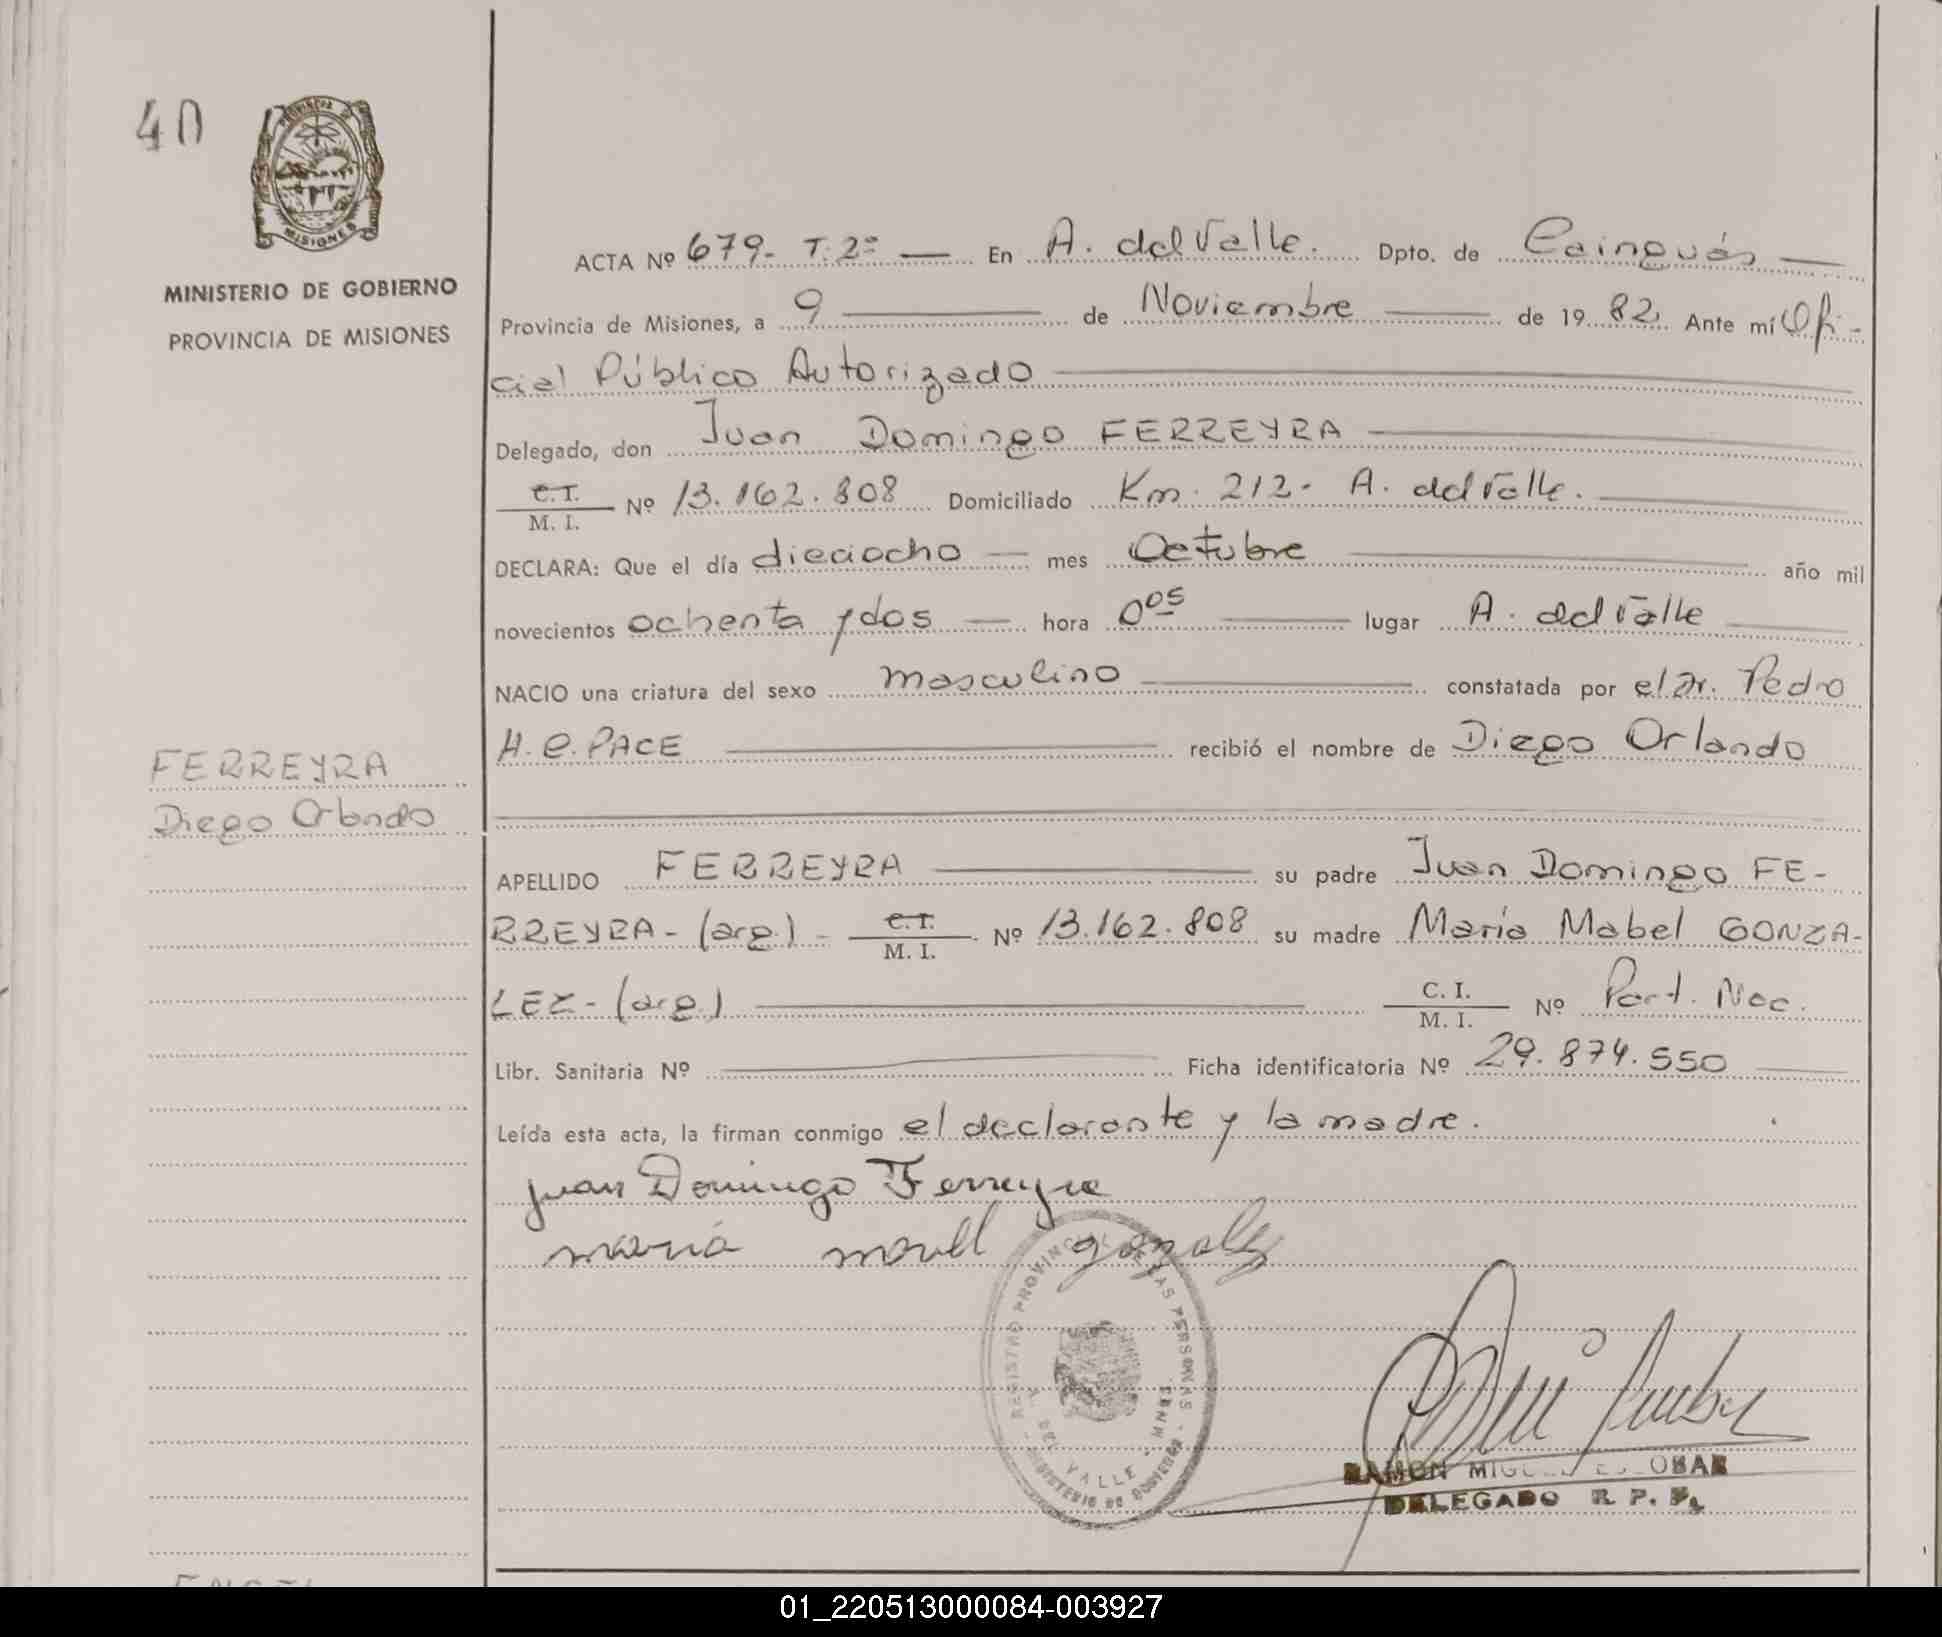 40
PROVINCIA DE
MISIONES
MINISTERIO DE GOBIERNO
PROVINCIA DE MISIONES
ACTA Nº 679- T. 2º — En A. del Valle. Dpto. de Cainguás —
Provincia de Misiones, a 9 — de Noviembre — de 19 82 Ante mí Ofi-
cial Público Autorizado —
Delegado, don Juan Domingo FERREYRA —
C.I. / M. I. Nº 13.162.808 Domiciliado Km. 212- A. del Valle. —
DECLARA: Que el día dieciocho — mes Octubre — año mil
novecientos ochenta y dos — hora 0 05 — lugar A. del Valle —
NACIO una criatura del sexo masculino — constatada por el Dr. Pedro
H. C. PACE — recibió el nombre de Diego Orlando
FERREYRA
Diego Orlando
APELLIDO FERREYRA — su padre Juan Domingo FE-
RREYRA - (arg.) - C.I. / M. I. Nº 13.162.808 su madre María Mabel GONZA-
LEZ - (arg.) — C. I. / M. I. Nº Part. Nac.
Libr. Sanitaria Nº — Ficha identificatoria Nº 29.874.550 —
Leída esta acta, la firman conmigo el declarante y la madre.
Juan Domingo Ferreyra
maría mavel gonzalez
REGISTRO PROVINCIAL DE LAS PERSONAS -
A. DEL VALLE - MNES.
MINISTERIO DE GOBIERNO
RAMON MIGUEL ESCOBAR
DELEGADO R. P. P.
01_220513000084-003927